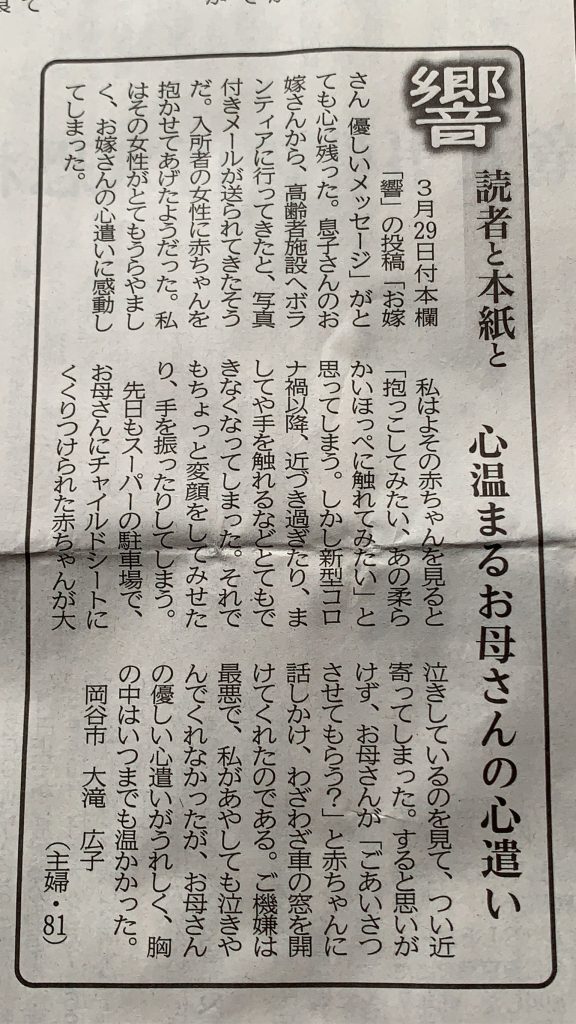 響
読者と本紙と
心温まるお母さんの心遣い
3月29日付本欄
「響」の投稿「お嫁
さん 優しいメッセージ」がと
ても心に残った。息子さんのお
嫁さんから、高齢者施設へボラ
ンティアに行ってきたと、写真
付きメールが送られてきたそう
だ。入所者の女性に赤ちゃんを
抱かせてあげたようだった。私
はその女性がとてもうらやまし
く、お嫁さんの心遣いに感動し
てしまった。
私はよその赤ちゃんを見ると
「抱っこしてみたい、あの柔ら
かいほっぺに触れてみたい」と
思ってしまう。しかし新型コロ
ナ禍以降、近づき過ぎたり、ま
してや手を触れるなどとてもで
きなくなってしまった。それで
もちょっと変顔をしてみせた
り、手を振ったりしてしまう。
先日もスーパーの駐車場で、
お母さんにチャイルドシートに
くくりつけられた赤ちゃんが大
泣きしているのを見て、つい近
寄ってしまった。すると思いが
けず、お母さんが「ごあいさつ
させてもらう?」と赤ちゃんに
話しかけ、わざわざ車の窓を開
けてくれたのである。ご機嫌は
最悪で、私があやしても泣きや
んでくれなかったが、お母さん
の優しい心遣いがうれしく、胸
の中はいつまでも温かかった。
岡谷市 大滝 広子
(主婦・81)